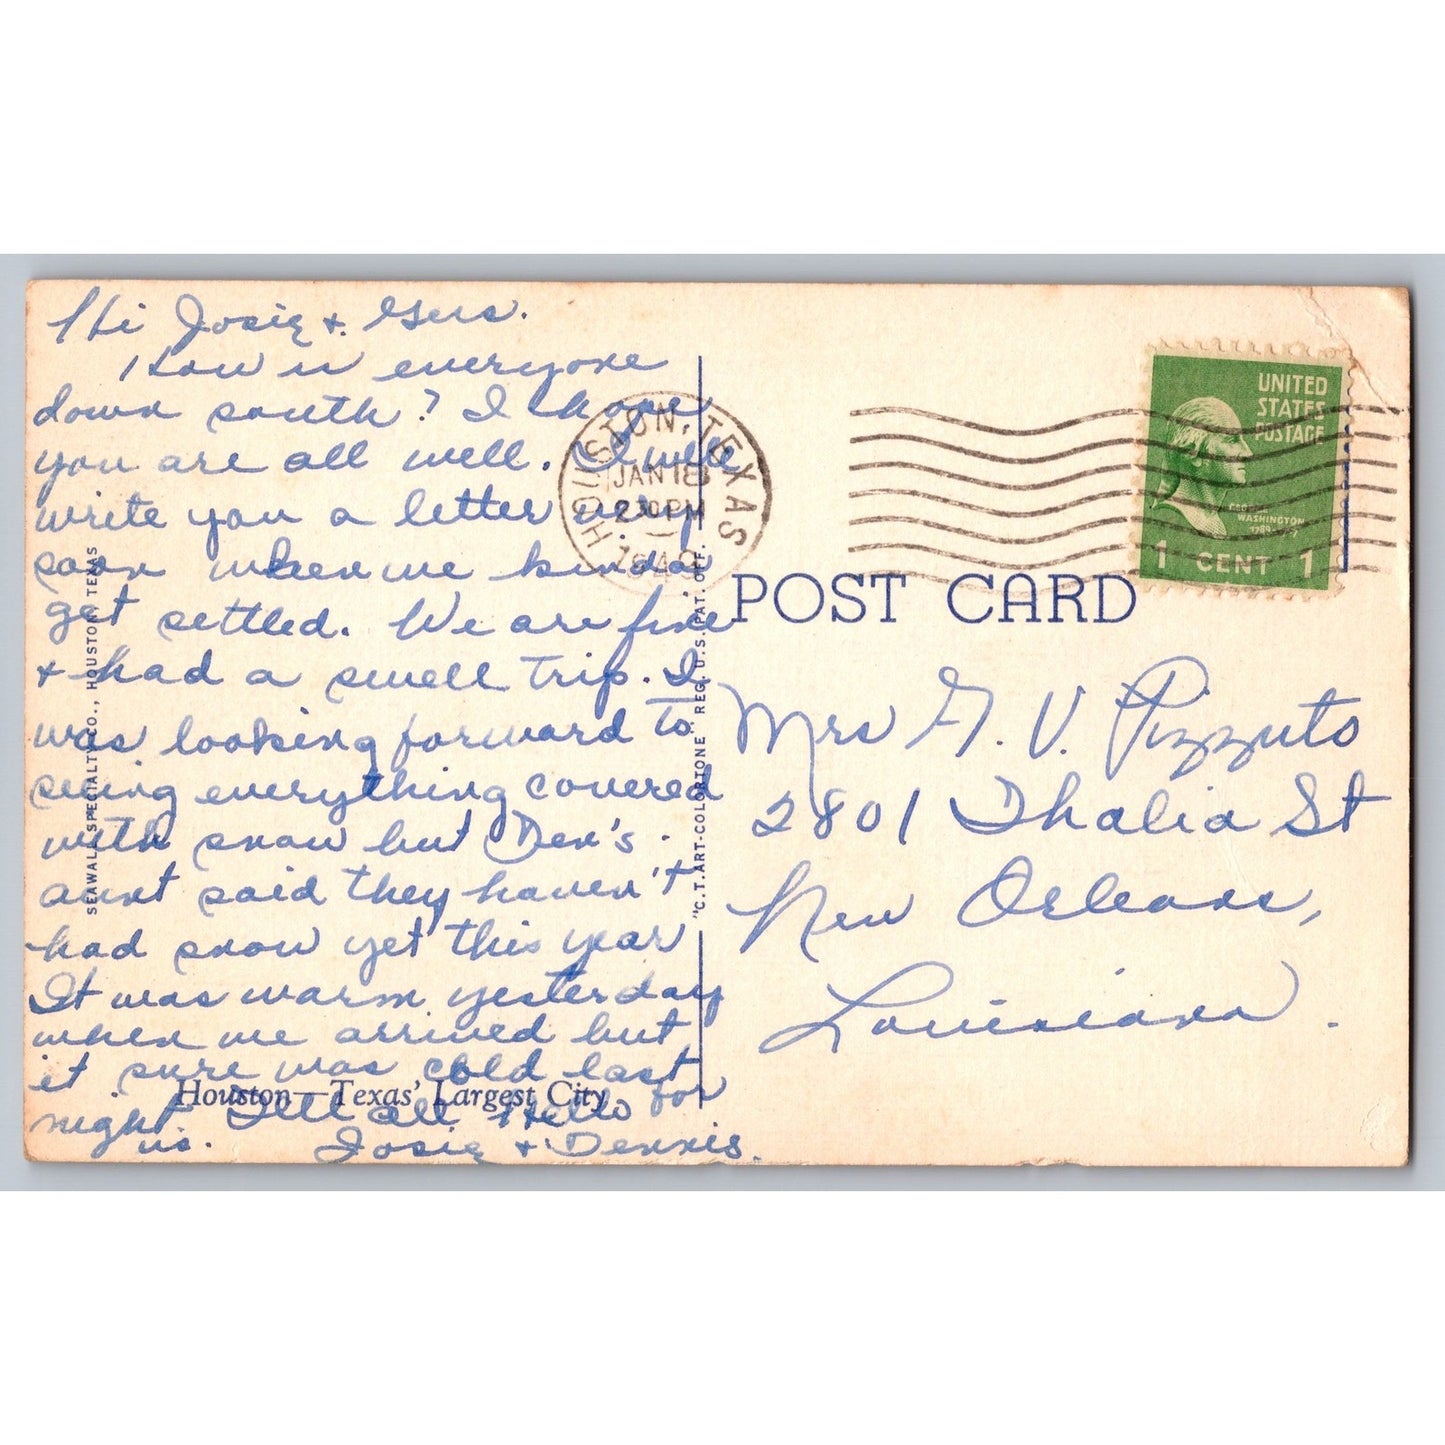 Hi Josie & Gus.
How is everyone
down south? I hope
you are all well. I will
write you a letter very
soon when we kinda
get settled. We are fine
& had a swell trip. I
was looking forward to
seeing everything covered
with snow but Den's
aunt said they haven't
had snow yet this year
It was warm yesterday
when we arrived but
it sure was cold last
night. Tell all Hello for
us. Josie & Dennis.
Houston—Texas' Largest City
SEAWALL SPECIALTY CO., HOUSTON, TEXAS
"C.T. ART-COLORTONE" REG. U.S. PAT. OFF.
HOUSTON, TEXAS
JAN 18
2 30 PM
UNITED
STATES
POSTAGE
WASHINGTON
1 CENT 1
POST CARD
Mrs G. V. Pizzuto
2801 Thalia St
New Orleans,
Louisiana.